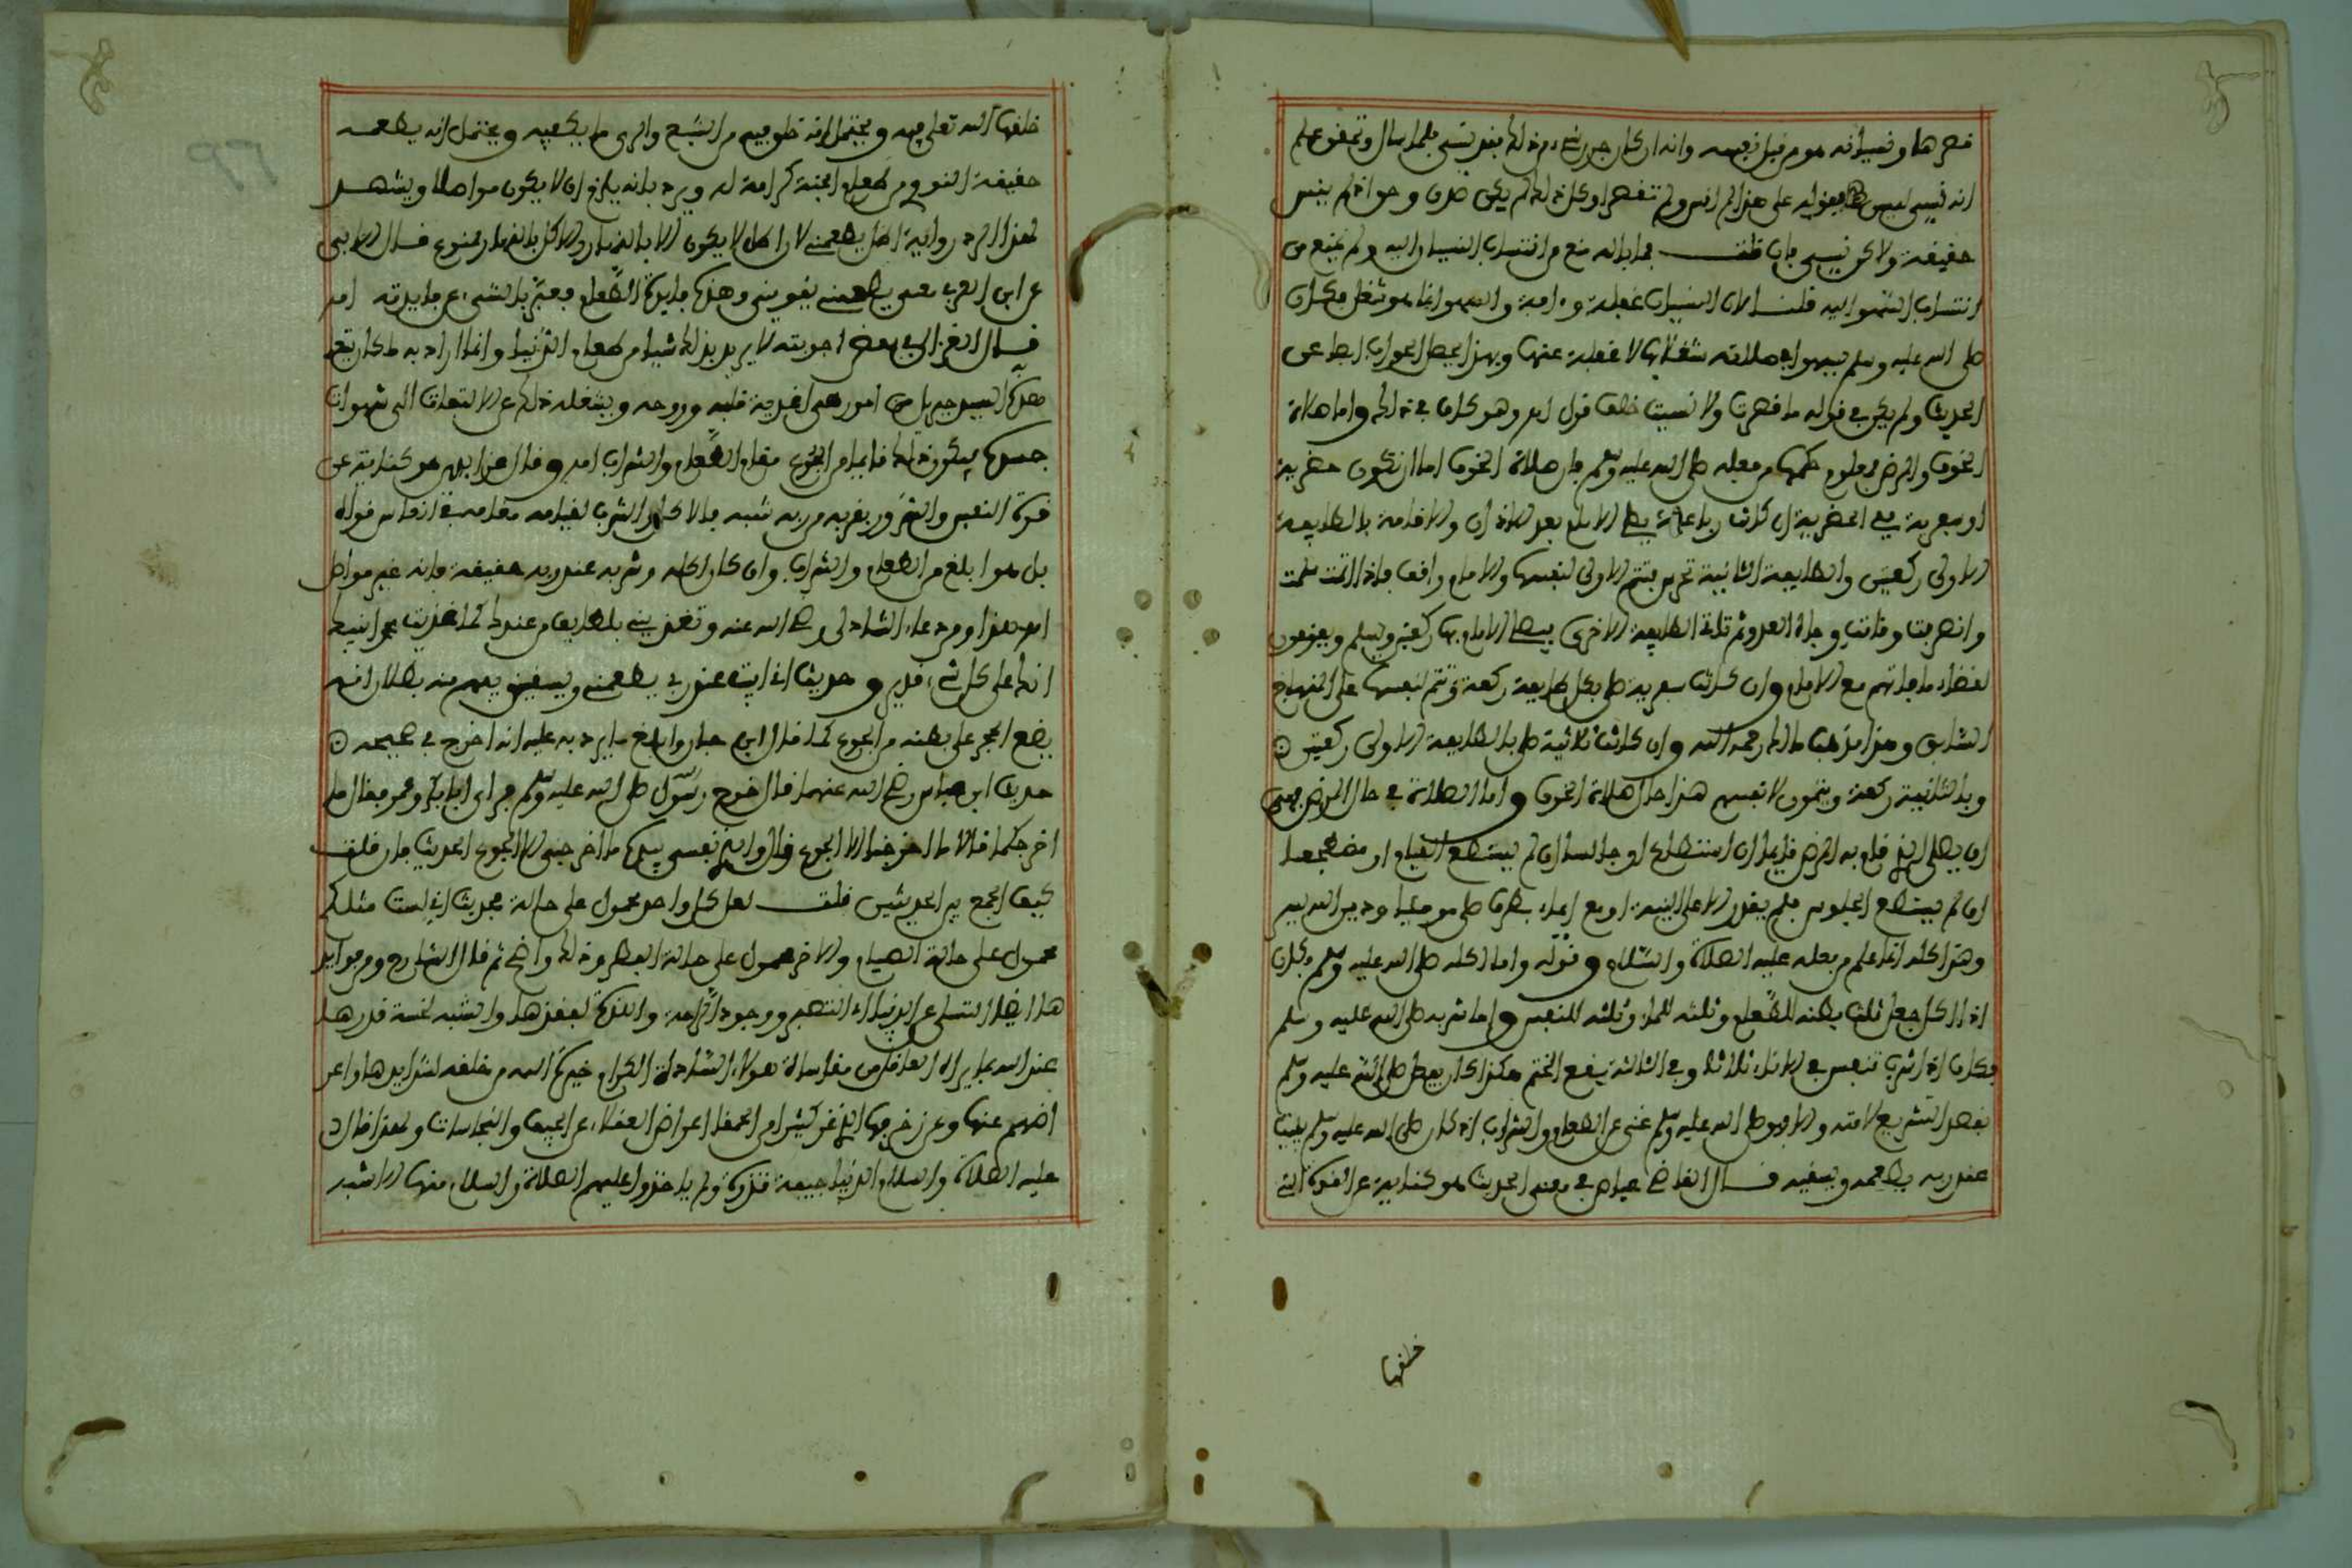 قصرها ونسيانه هو من قبل نفسه وانه ان كان جرى شيء من ذلك فقد نسي فلما سال وتحقق علم
انه نسي ليس فقوله على هذا لم انس ولم تقصر او كل ذلك لم يكن صدق وحق اذ لم ينس
حقيقة ولاكن نسي فان قلت فما باله منع من انتساب النسيان اليه ولم يمنع من
انتساب السهو اليه قلنا لان النسيان غفلة وءافة والسهو انما هو شغل فكان
صلى الله عليه وسلم يسهو في صلاته شغلا بها لا غفلة عنها وبهذا يحصل الجواب ايضا عن
الحديث ولم يكن في قوله ما قصرت ولا نسيت خلف قول اهـ وهو كاف في ذلك واما صلاة
الخوف والمرض فمعلوم حكمها من فعله صلى الله عليه وسلم فان صلاة الخوف اما ان تكون حضرية
او سفرية ففي الحضرية ان كانت رباعية يصلي الامام بعد الاذان والاقامة بالطايفة
الاولى ركعتين والطايفة الثانية تحرس فتتم الاولى لنفسها والامام واقف فاذا اتمت سلمت
وانصرفت وقاتت وجاه العدو ثم تاتي الطايفة الاخرى فيصلي الامام بها ركعتين ويسلم ويقومون
لقضاء ما فاتهم مع الامام وان كانت سفرية صلى بكل طايفة ركعة وتتم لنفسها على المنهاج
السابق وهذا مذهب مالك رحمه الله وان كانت ثلاثية صلى بالطايفة الاولى ركعتين
وبالثانية ركعة ويتمون لانفسهم هذا حال صلاة الخوف واما الصلاة في حال المرض فهي
ان يصلي الذي قام به المرض قايما ان استطاع او جالسا ان لم يستطع القيام او مضطجعا
ان لم يستطع الجلوس فلم يقدر الا على النية او مع ايماء بطرف صلى مومئا ودين الله يسر
وهذا كله انما علم من فعله عليه الصلاة والسلام وقوله واما اكله صلى الله عليه وسلم فكان
اذا اكل جعل ثلث بطنه للطعام وثلثه للماء وثلثه للنفس واما شربه صلى الله عليه وسلم
فكان اذا شرب تنفس في الاناء ثلاثا وفي الثالثة يقع الختم هكذا كان يفعل صلى الله عليه وسلم
بقصد التشريع لامته والا فهو صلى الله عليه وسلم غني عن الطعام والشراب اذ كان صلى الله عليه وسلم يبيت
عند ربه يطعمه ويسقيه قال القاضي عياض في معنى الحديث هو كناية عن القوة التي
خلفها
خلقها الله تعلى فيه ويحتمل انه خلق فيه من الشبع والري ما يكفيه ويحتمل انه يطعمه
حقيقة النوع من طعام الجنة كرامة له ويرد بانه يلزم ان لا يكون مواصلا ويشهد
لهذا الرد رواية اظل يطعمني لان اظل لا يكون الا بالنهار والاكل بالنهار ممنوع قال الابي
عن ابن العربي معنى يطعمني يقويني وهذه فايدة الطعام فعبر بالشيء عن فايدته اهـ
قال الغزالي في بعض اجوبته لا يريد بذلك شيئا من طعام الدنيا وانما اراد به ما كان يتحفه
به هناك السيد جبريل من امور هي اغذية قلبه وروحه ويشغله ذلك عن الالتفات الى شهوات
جسده فيكون ذلك قايما من الجوع مقام الطعام والشراب اهـ وقال عز الدين هو كناية عن
قوة النفس والتغذي بقربه من ربه شبه بالاكل والشرب لقيامه مقامه في انعاش قواه
بل هو ابلغ من الطعام والشراب وان كان اكله وشربه عند ربه حقيقة فانه غير مواصل
اهـ هذا ومن دعاء الشاذلي رضي الله عنه وتغذيني بلطايف من عندك كما غذيت محمدا نبيك
انك على كل شيء قدير وحديث اني ابيت عند ربي يطعمني ويسقيني يفهم منه بطلان انه
يضع الحجر على بطنه من الجوع كما قال ابن حبان وابلغ ما يرد به عليه انه اخرج في صحيحه
حديث ابن عباس رضي الله عنهما قال خرج رسول صلى الله عليه وسلم فراى ابا بكر وعمر فقال ما
اخرجكما قالا ما اخرجنا الا الجوع قال والذي نفسي بيده ما اخرجني الا الجوع الحديث فان قلت
كيف الجمع بين الحديثين قلت لعل كل واحد محمول على حالة فحديث اني لست مثلكم
محمول على حالة الصيام والاخر محمول على حالة الفطر وذلك واضح ثم قال الشارح ومن فوايد
هذا ايضا التسلي عن الدنيا اي التصبر ووجود الراحة واللذة لفقدها والتنبه لخسة قدرها
عند الله بما يراه العاقل من مقاساة هولاء السادة الكرام خيرة الله من خلقه لشدايدها واعر
اضهم عنها وعن زخرفها الذي غر كثيرا من الحمقا اعراض العقلاء عن الجيف والنجاسات ولهذا قال
عليه الصلاة والسلام الدنيا جيفة قذرة ولم ياخذوا عليهم الصلاة والسلام منها الا شبه